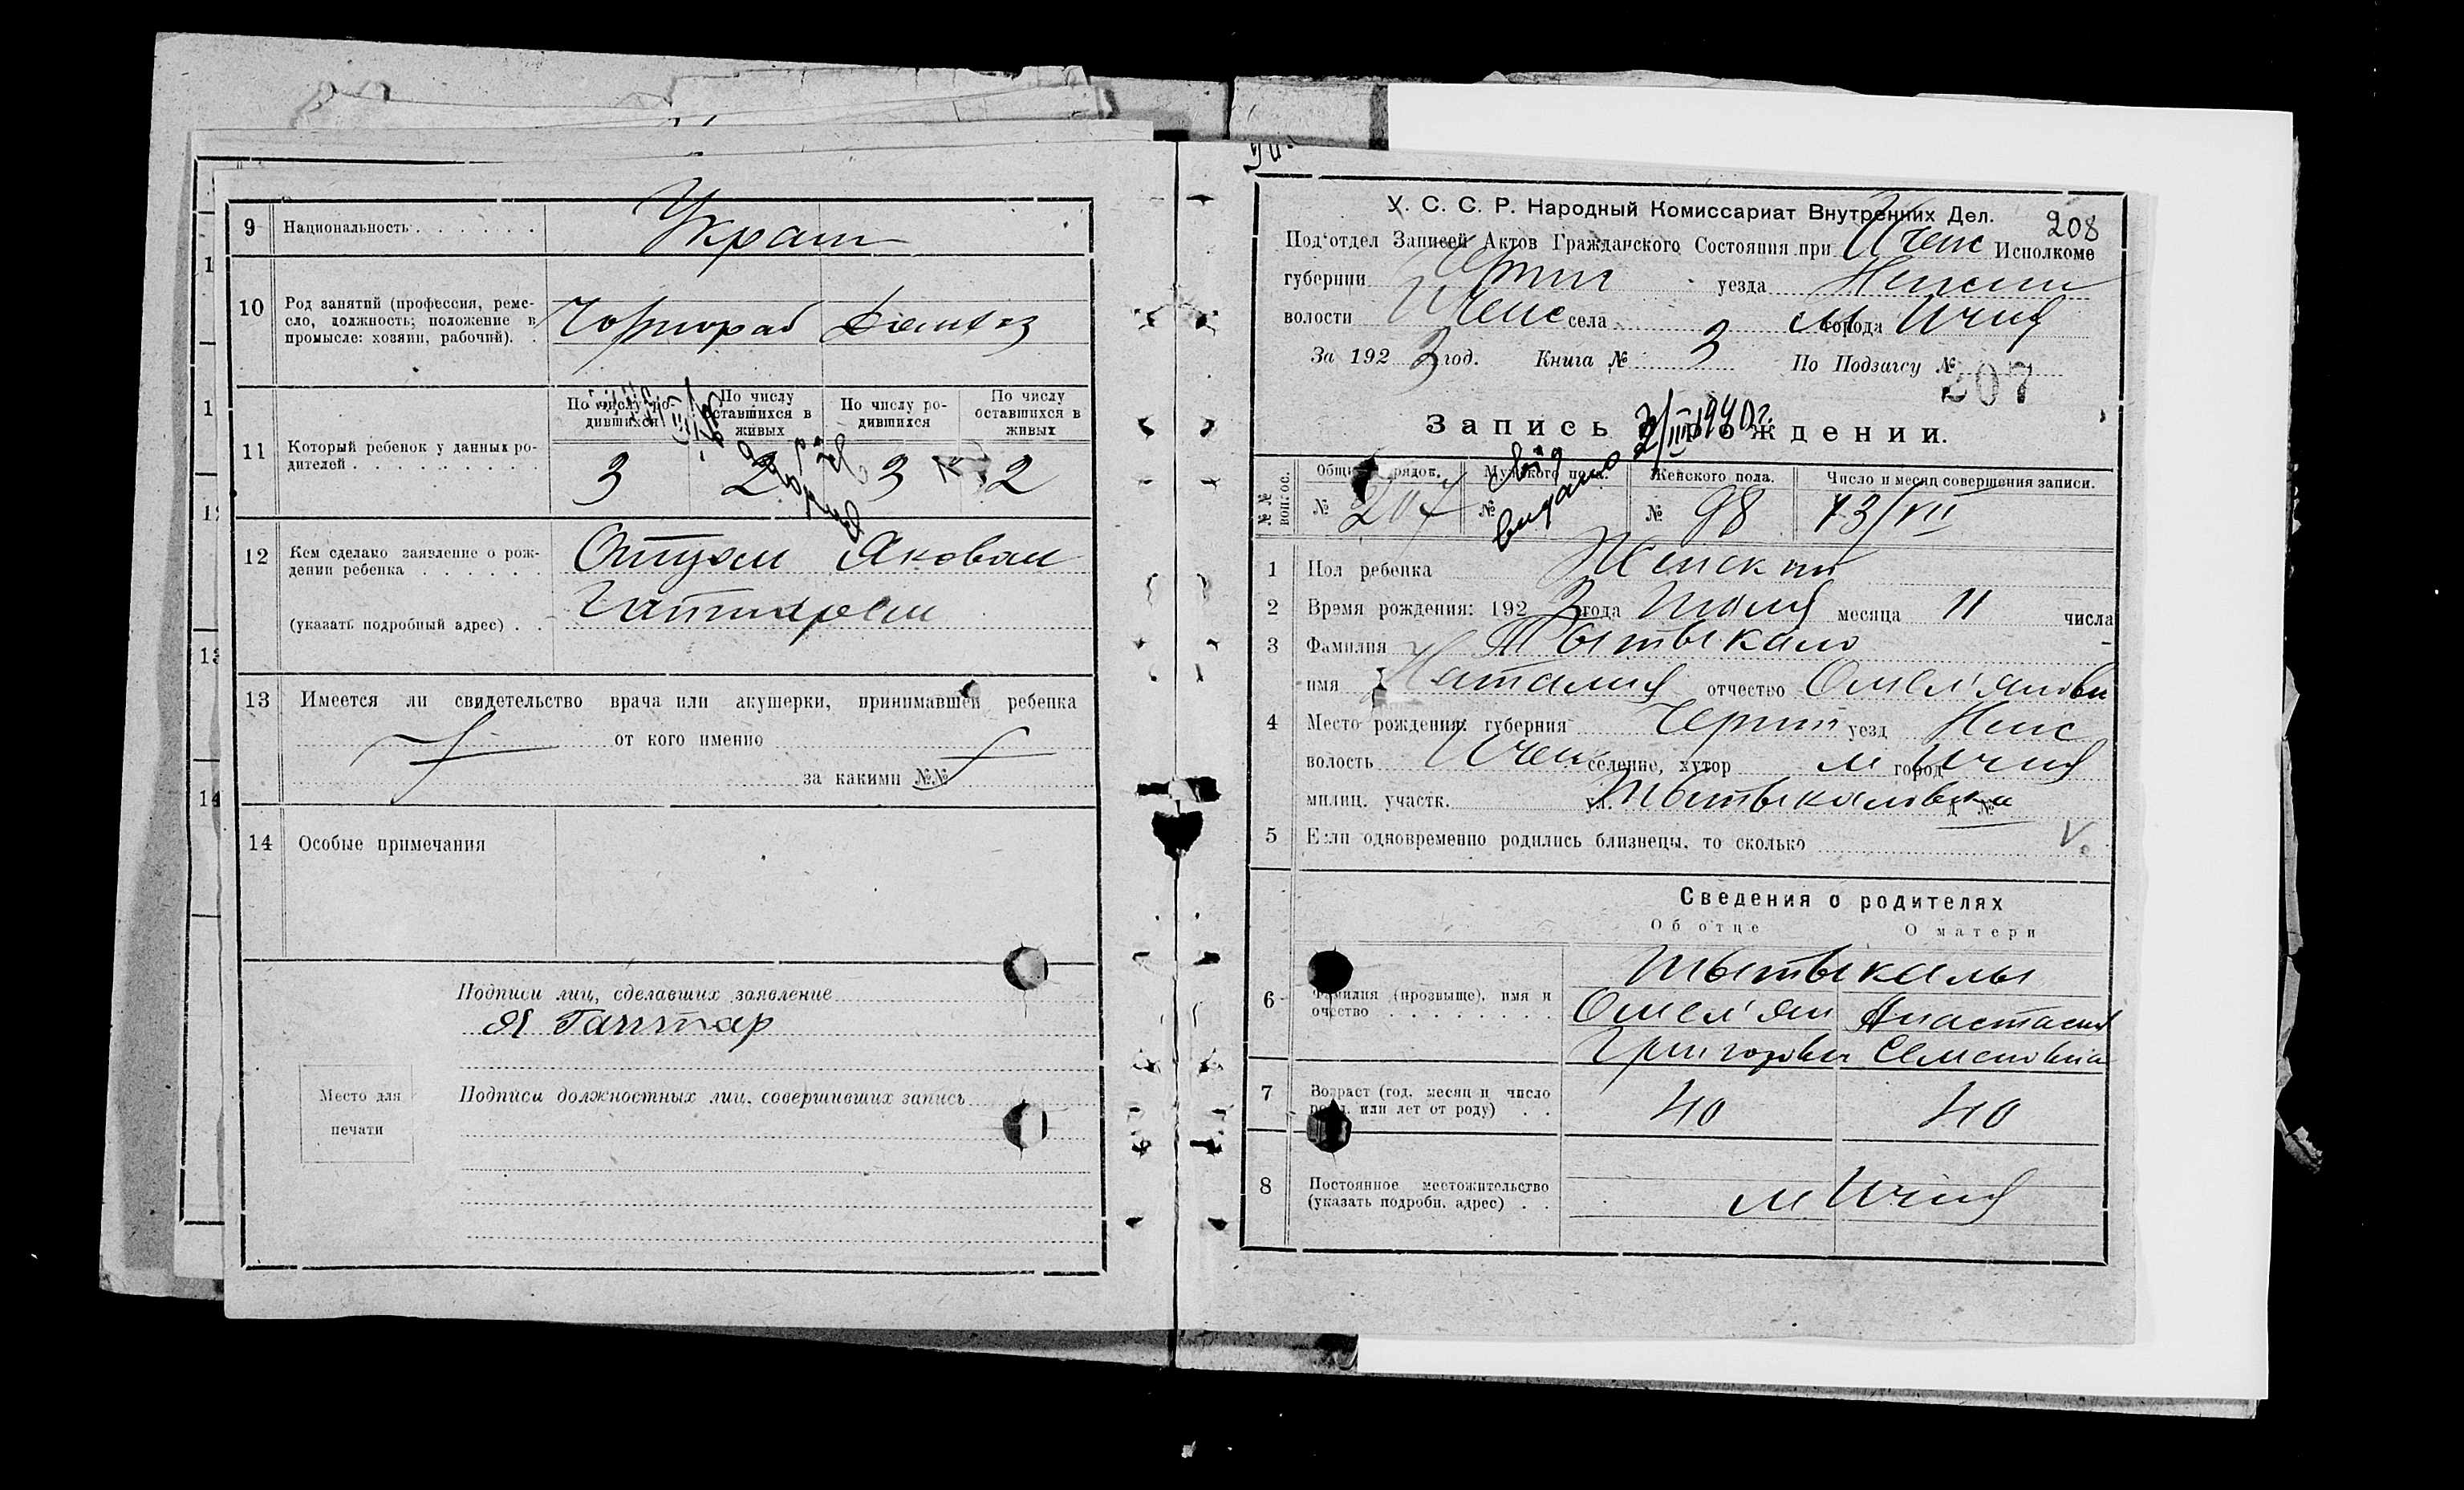 9 Национальность . . . . . . Украин
10 Род занятий (профессия, ремесло, должность; положение в промысле: хозяин, рабочий). . Чорнораб Домхоз
11 Который ребенок у данных родителей . . . . . . . . .
По числу родившихся
По числу оставшихся в живых
По числу родившихся
По числу оставшихся в живых
3 2 3 2
12 Кем сделано заявление о рождении ребенка . . . . . . Отцом Яковом
(указать подробный адрес) . . Гаптаром
13 Имеется ли свидетельство врача или акушерки, принимавшей ребенка
от кого именно
за какими №№
14 Особые примечания
Подписи лиц, сделавших заявление
Я Гаптар
Место для печати
Подписи должностных лиц, совершивших запись
208
У. С. С. Р. Народный Комиссариат Внутренних Дел.
Под'отдел Записей Актов Гражданского Состояния при Ичен Исполкоме
губернии Черниг уезда Нежин
волости Ичен села города м Ичня
За 192 3 год. Книга № 3 По Подзагсу № 207
Запись о рождении.
2/III 1940 г.
видано
№№ вопрос.
Общий порядов. № 207
Мужского пола. №
Женского пола. № 98
Число и месяц совершения записи. 13/VII
1 Пол ребенка Женский
2 Время рождения: 192 3 года Июля месяца 11 числа
3 Фамилия Тытыкало
имя Наталия отчество Омел'янови
4 Место рождения: губерния Черниг уезд Неж
волость Ичен селение, хутор м город Ичня
милиц. участк. ул. Тытыкаловка д №
5 Если одновременно родились близнецы, то сколько
Сведения о родителях
Об отце О матери
6 Фамилия (прозвище), имя и очество . . . . . . . . Тытыкалы
Омел'ян Анастасия
Григорович Семеновна
7 Возраст (год, месяц и число рожд. или лет от роду) . . 40 40
8 Постоянное местожительство (указать подробн. адрес) . . м Ичня